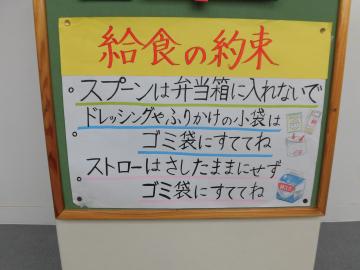 給食の約束
スプーンは弁当箱に入れないで
ドレッシングやふりかけの小袋は
ゴミ袋にすててね
ストローはさしたままにせず
ゴミ袋にすててね